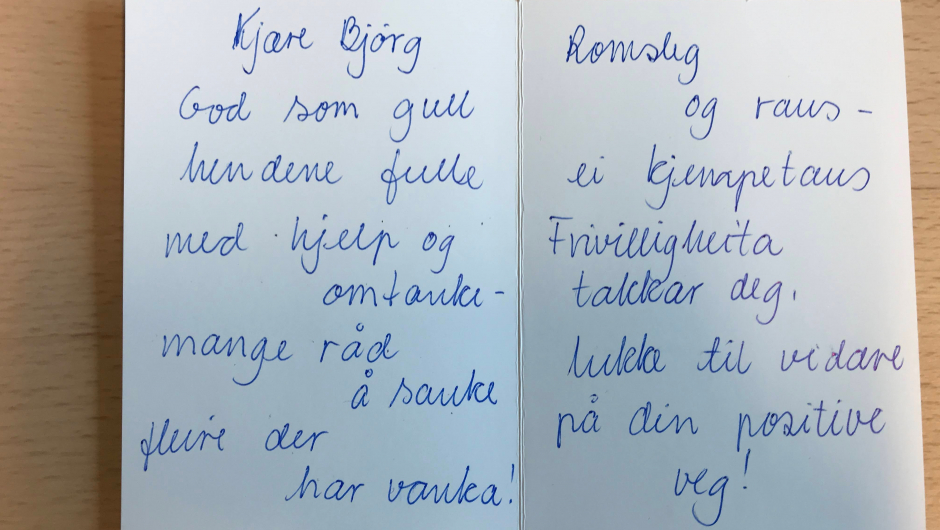 Kjære Björg
God som gull
hendene fulle
med hjelp og
omtanke-
mange råd
å sanke
fleire der
har vanka!
Romsleg
og raus -
ei kjempetaus
Frivilligheita
takkar deg,
lukke til vidare
på din positive
veg!